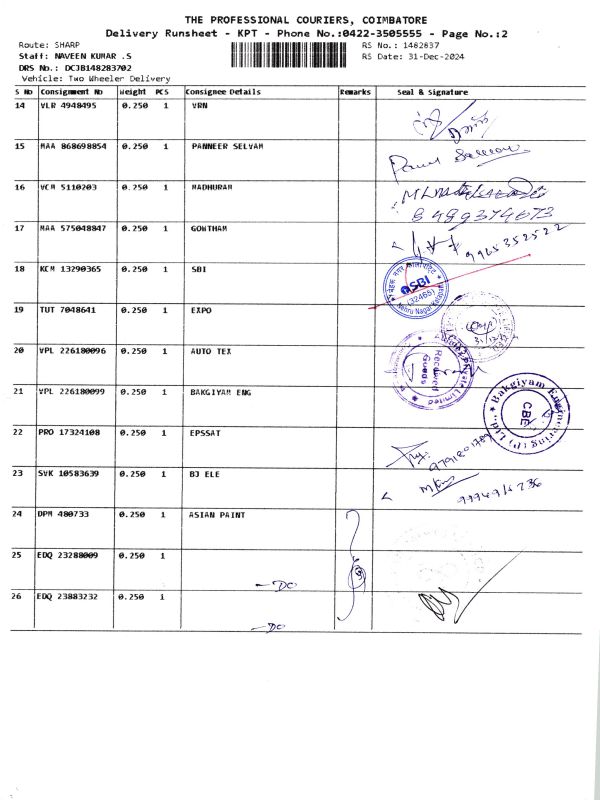 THE PROFESSIONAL COURIERS, COIMBATORE
Delivery Runsheet - KPT - Phone No.:0422-3505555 - Page No.:2
Route: SHARP
RS No.: 1482837
Staff: NAVEEN KUMAR .S
RS Date: 31-Dec-2024
DRS No.: DCJB148283702
Vehicle: Two Wheeler Delivery
S No Consignment No Weight PCS Consignee Details Remarks Seal & Signature
14 VLR 4948495 0.250 1 VRN
15 MAA 868698854 0.250 1 PANNEER SELVAM
16 VCM 5110203 0.250 1 MADHURAM
8489374673
17 MAA 575048847 0.250 1 GOWTHAM
9965352522
18 KCM 13290365 0.250 1 SBI
SBI
(32465)
Nehru Nagar
19 TUT 7048641 0.250 1 EXPO
20 VPL 226180096 0.250 1 AUTO TEX
Received
Goods
Private Limited
21 VPL 226180099 0.250 1 BAKGIYAM ENG
Bakgiyam Engineering (P) Ltd.
CBE
22 PRO 17324108 0.250 1 EPSSAT
23 SVK 10583639 0.250 1 BJ ELE
24 DPM 480733 0.250 1 ASIAN PAINT
25 EDQ 23288009 0.250 1
- DO
26 EDQ 23883232 0.250 1
- DO